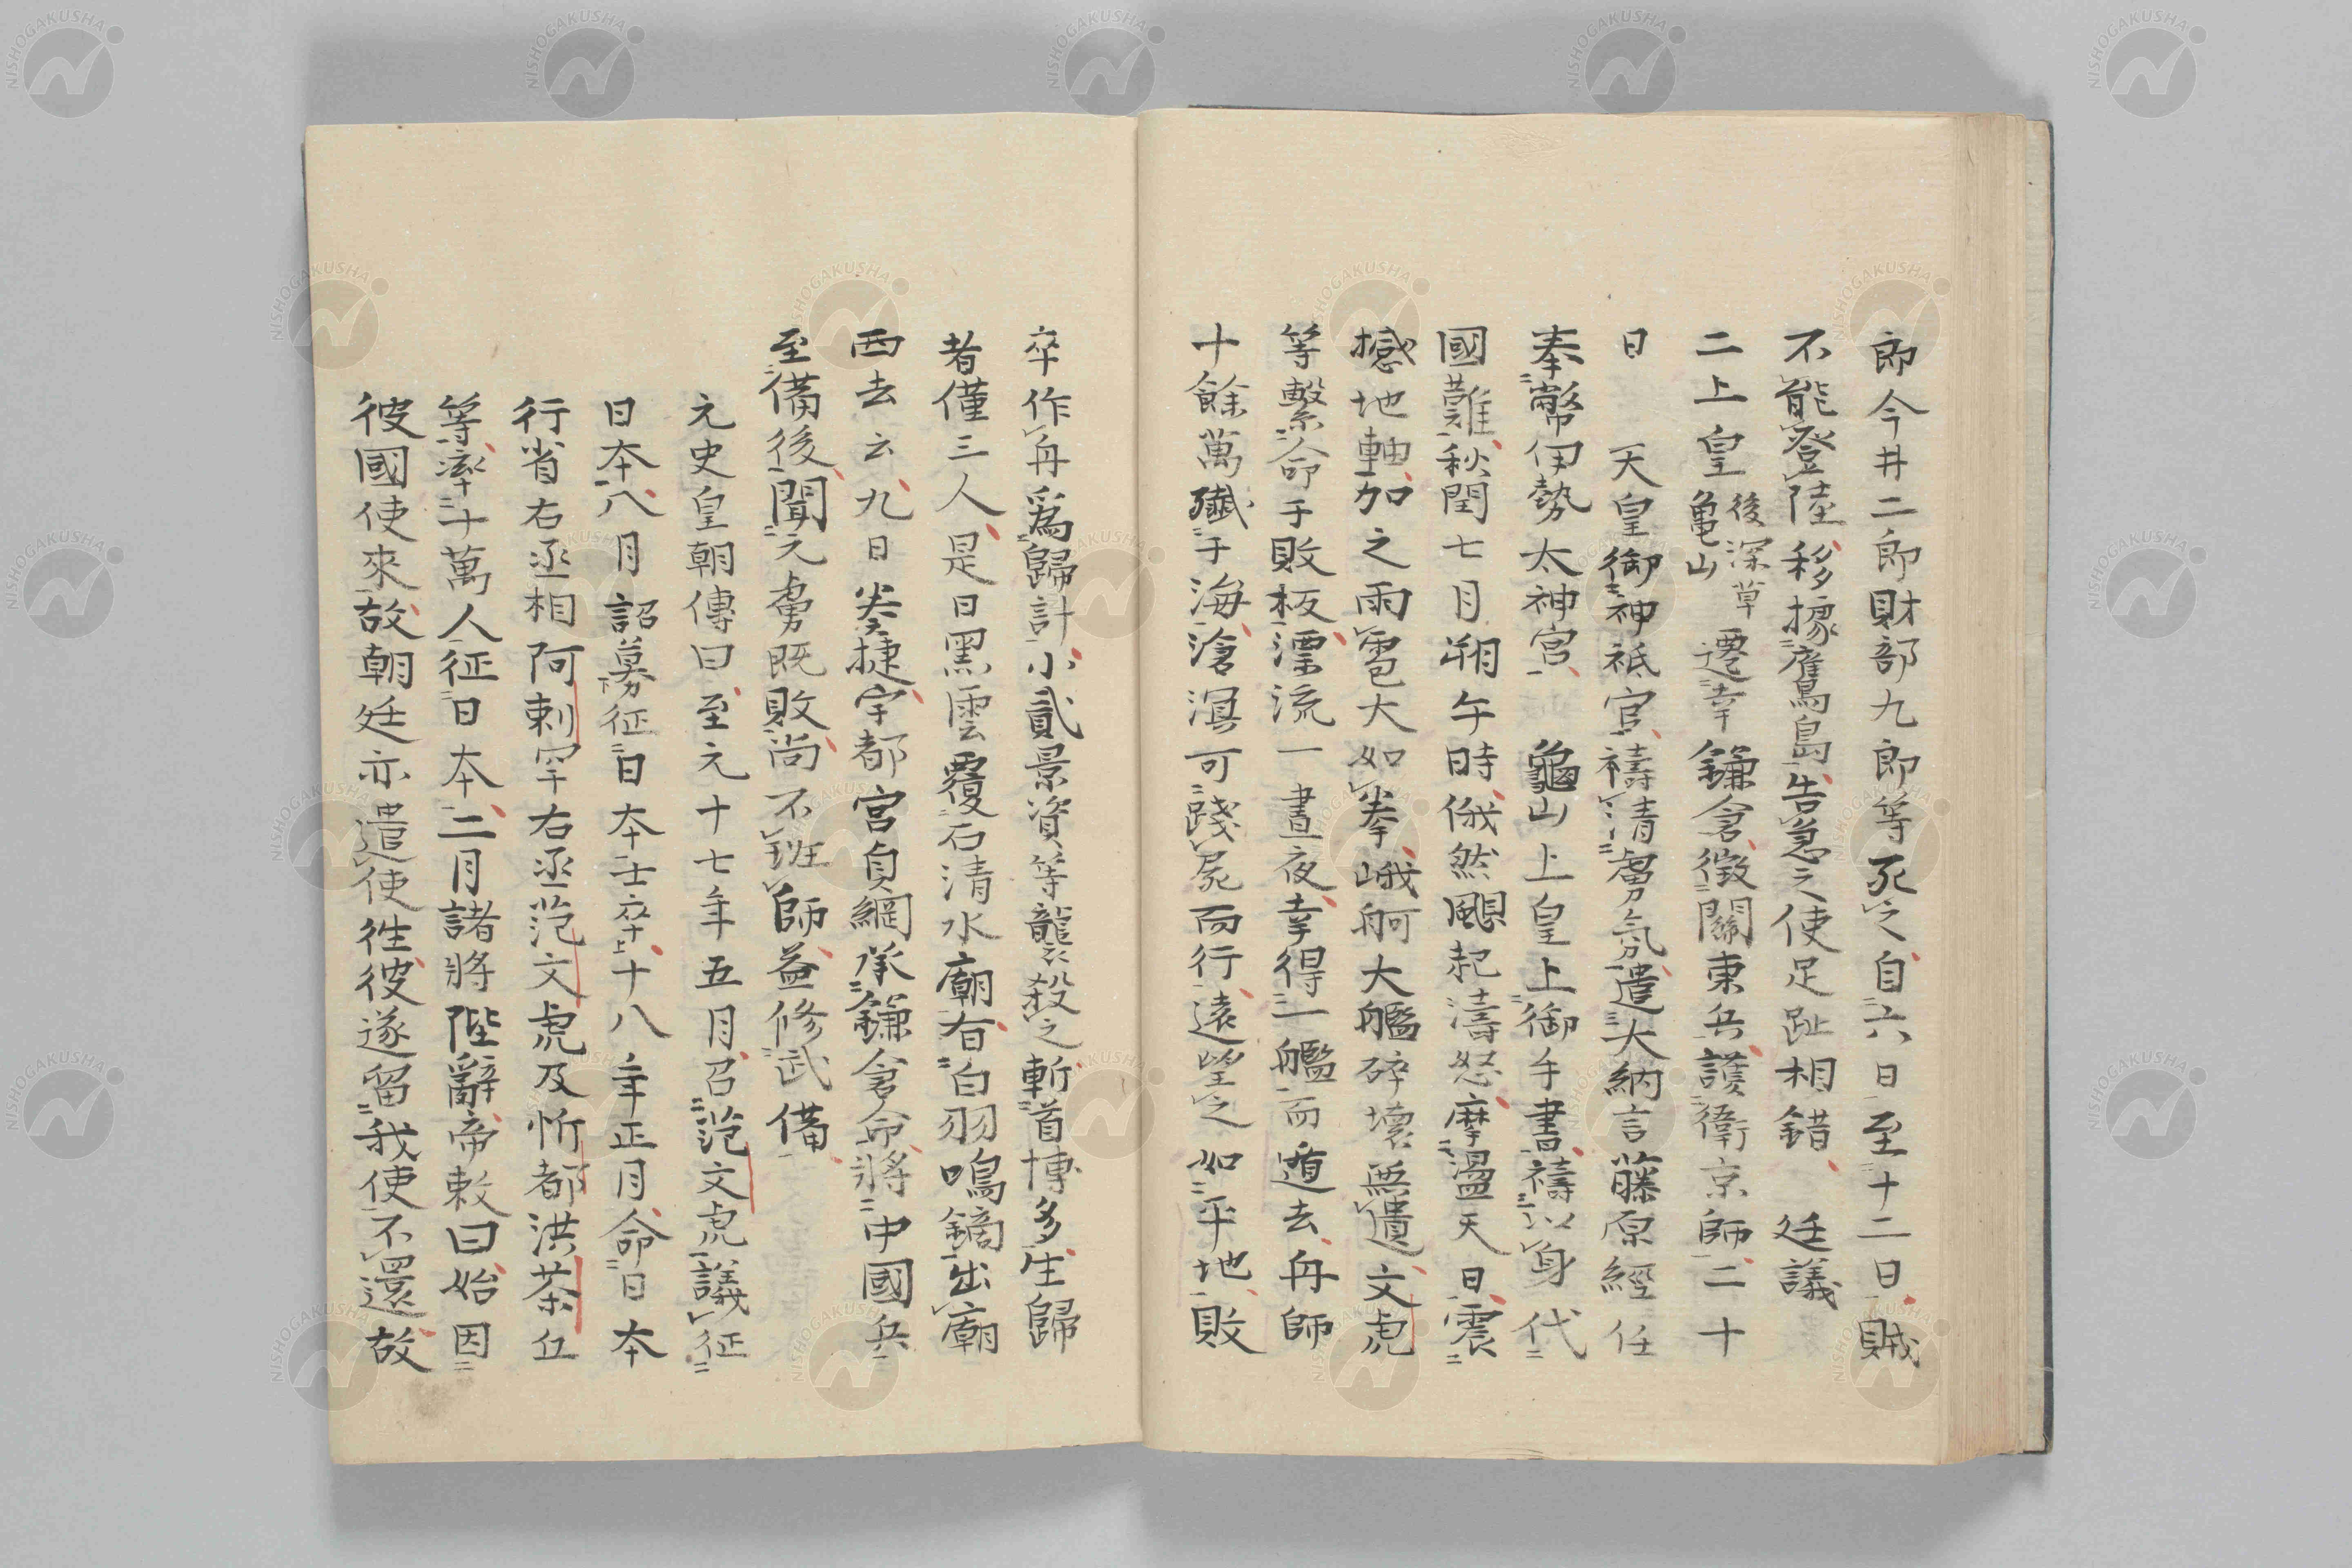 郎今井二郎財部九郎等死之自六日至十二日賊
不能登陸移據鷹島告急之使足趾相錯　廷議
二上皇後深草龜山遷幸鎌倉徵關東兵護衛京師二十
日　天皇御神祇官禱清虜氛遣大納言藤原經任
奉幣伊勢太神宮　龜山上皇上御手書禱以身代
國難秋閏七月朔午時俄然颶起濤怒摩盪天日震
撼地軸加之雨雹大如拳峨舸大艦碎壞無遺文虎
等繫命于敗板漂流一晝夜幸得一艦而遁去舟師
十餘萬殲于海滄溟可踐屍而行遠望之如平地敗
卒作舟爲歸計小貳景資等襲殺之斬首博多生歸
者僅三人是日黑雲覆石清水廟有白羽鳴鏑出廟
西去云九日奏捷宇都宮貞綱承鎌倉命將中國兵
至備後聞元虜既敗尚不班師益修武備
元史皇朝傳曰至元十七年五月召范文虎議征
日本八月詔募征日本士卒十八年正月命日本
行省右丞相阿剌罕右丞范文虎及忻都洪茶丘
等率十萬人征日本二月諸將陛辭帝敕曰始因
彼國使來故朝廷亦遣使往彼遂留我使不還故
NISHOGAKUSHA